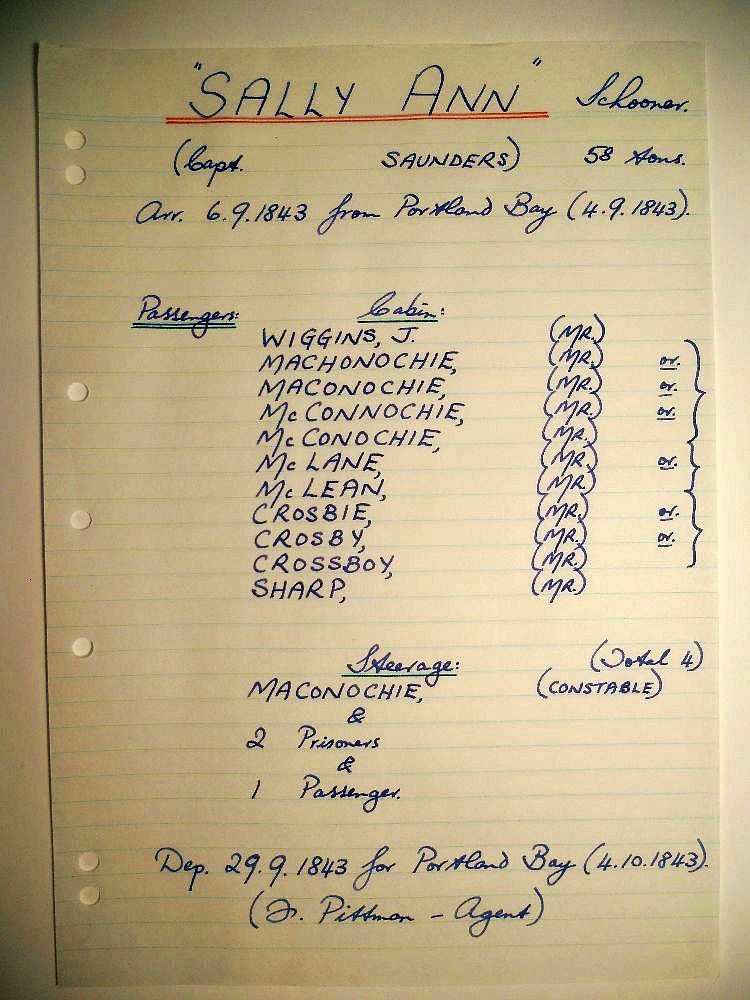 "SALLY ANN" Schooner.
(Capt. SAUNDERS) 58 tons.
Arr. 6.9.1843 from Portland Bay (4.9.1843).
Passengers: Cabin:
WIGGINS, J. (MR.)
MACHONOCHIE, (MR.) or.
MACONOCHIE, (MR.) or.
McCONNOCHIE, (MR.) or.
McCONOCHIE, (MR.)
McLANE, (MR.) or.
McLEAN, (MR.)
CROSBIE, (MR.) or.
CROSBY, (MR.) or.
CROSSBOY, (MR.)
SHARP, (MR.)
Steerage: (Total 4)
MACONOCHIE, (CONSTABLE)
&
2 Prisoners
&
1 Passenger.
Dep. 29.9.1843 for Portland Bay (4.10.1843).
(J. Pittman - Agent)